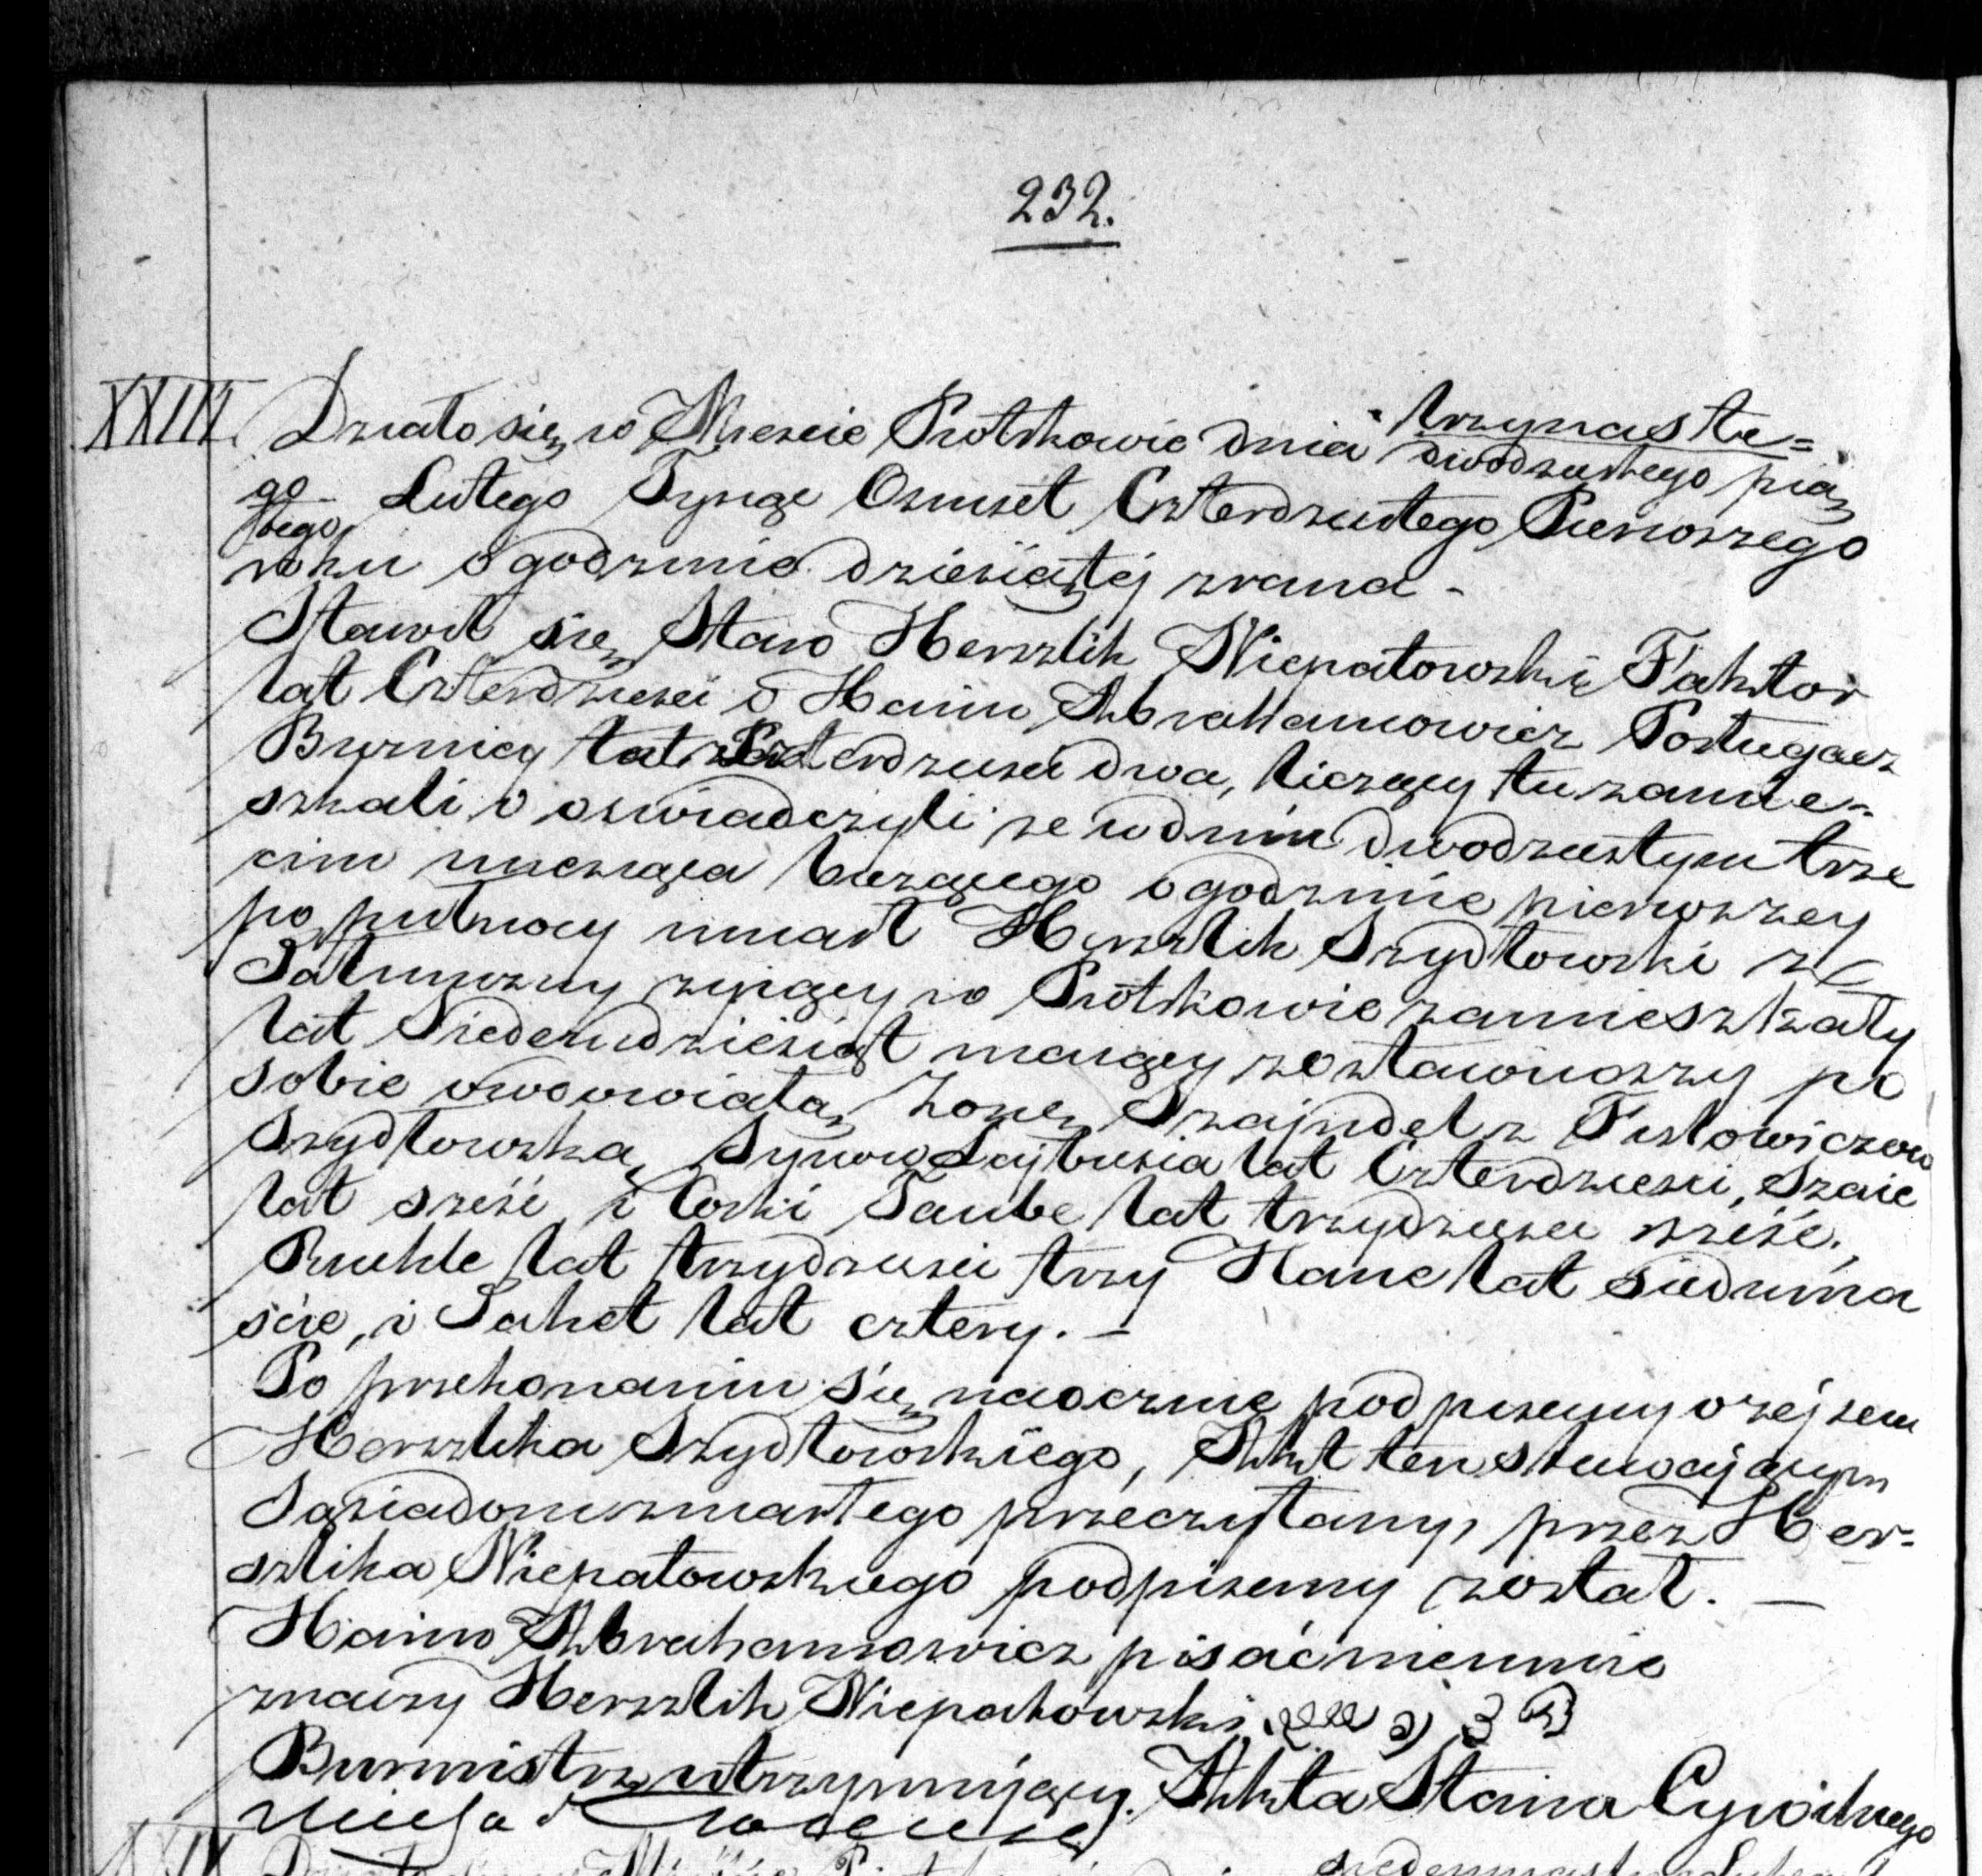 232.
XXIII. Działo się w Mieście Piotrkowie dnia trzynaste=
go dwódziestego pią
tego Lutego Tysiąc Osmset Czterdziestego Pierwszego
roku o godzinie dziesiątej zrana -
Stawił się Staro Herszlik Niepatowski Faktor
lat Czterdzieści i Haim Abrahamowicz Posługacz
Bużnicy lat Czterdzieści dwa, liczący tu zamie-
szkali i oświadczyli że w dniu dwódziestym trze
cim miesiąca bieżącego o godzinie pierwszey
po pułnocy umarł Herszlik Szydłowski z
żyiący w Piotrkowie zamieszkały
lat Siedemdziesiąt maiący zostawiwszy po
sobie owdowiałą Żonę Szajndel z Fiszlowiczow
Szydłowską, Synow Lejbusia lat Czterdzieści, Szaie
lat sześć i Corki Taube lat trzydzieści sześć,
Ruchle lat trzydzieści trzy Hane lat siedmna
ście, i Sahet lat cztery. —
Po przekonaniu się naocznie podpisany o zejsciu
Herszlika Szydłowskiego, Akt ten stawającym
Sąsiadom zmarłego przeczytany, przez Her=
szlika Niepatowskiego podpisany został. —
Haim Abrahamowicz pisać nieumie
znaszy Herszlik Niepatowski
Burmistrz utrzymujący Akta Stanu Cywilnego